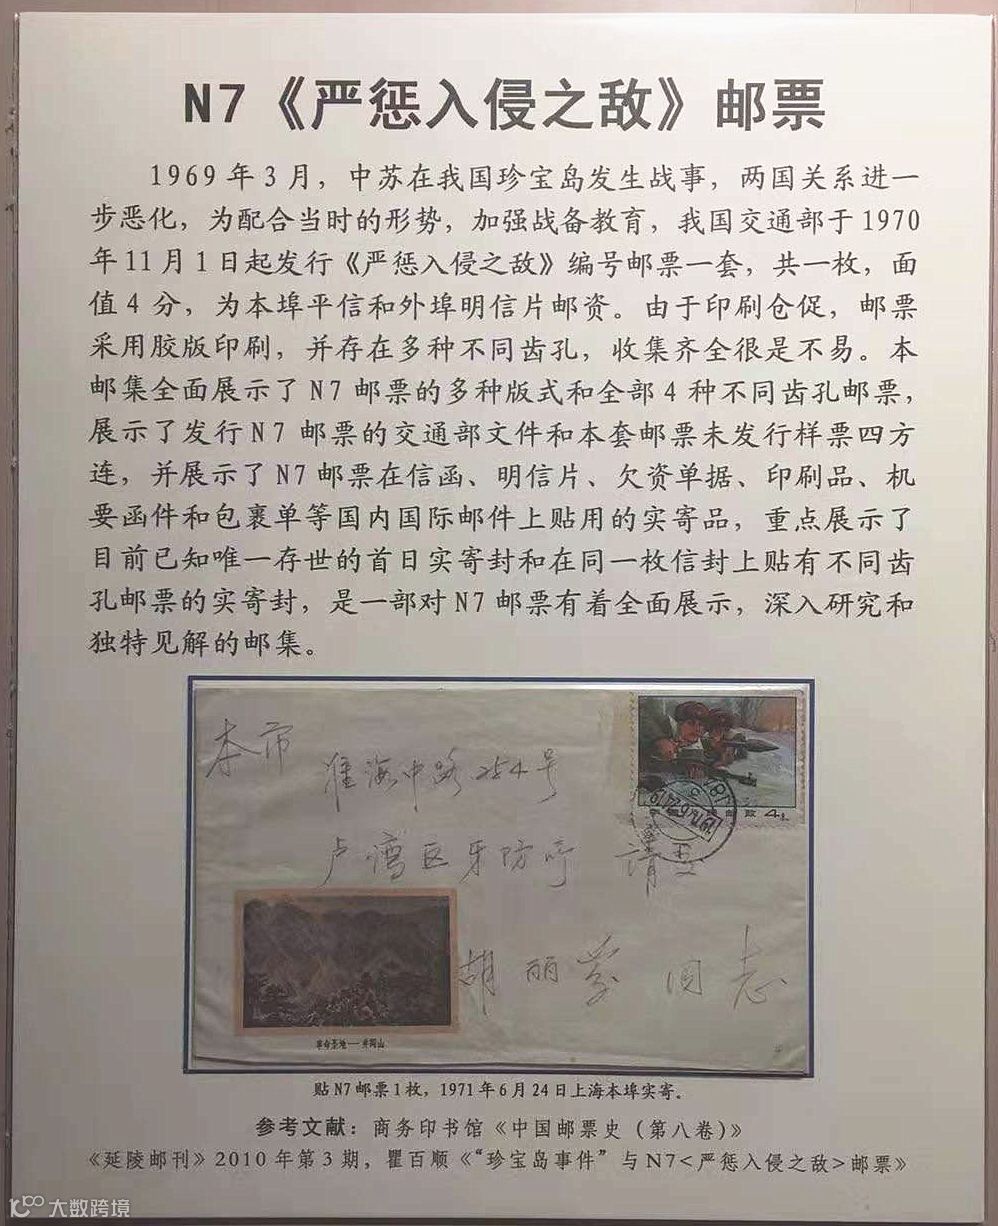 N7《严惩入侵之敌》邮票
1969年3月，中苏在我国珍宝岛发生战事，两国关系进一
步恶化，为配合当时的形势，加强战备教育，我国交通部于1970
年11月1日起发行《严惩入侵之敌》编号邮票一套，共一枚，面
值4分，为本埠平信和外埠明信片邮资。由于印刷仓促，邮票
采用胶版印刷，并存在多种不同齿孔，收集齐全很是不易。本
邮集全面展示了N7邮票的多种版式和全部4种不同齿孔邮票，
展示了发行N7邮票的交通部文件和本套邮票未发行样票四方
连，并展示了N7邮票在信函、明信片、欠资单据、印刷品、机
要函件和包裹单等国内国际邮件上贴用的实寄品，重点展示了
目前已知唯一存世的首日实寄封和在同一枚信封上贴有不同齿
孔邮票的实寄封，是一部对N7邮票有着全面展示，深入研究和
独特见解的邮集。
本市
淮海中路254号
卢湾区牙防所 请交
胡丽 同志
革命圣地——井冈山
贴N7邮票1枚，1971年6月24日上海本埠实寄。
参考文献：商务印书馆《中国邮票史（第八卷）》
《延陵邮刊》2010年第3期，瞿百顺《“珍宝岛事件”与N7<严惩入侵之敌>邮票》
大数跨境